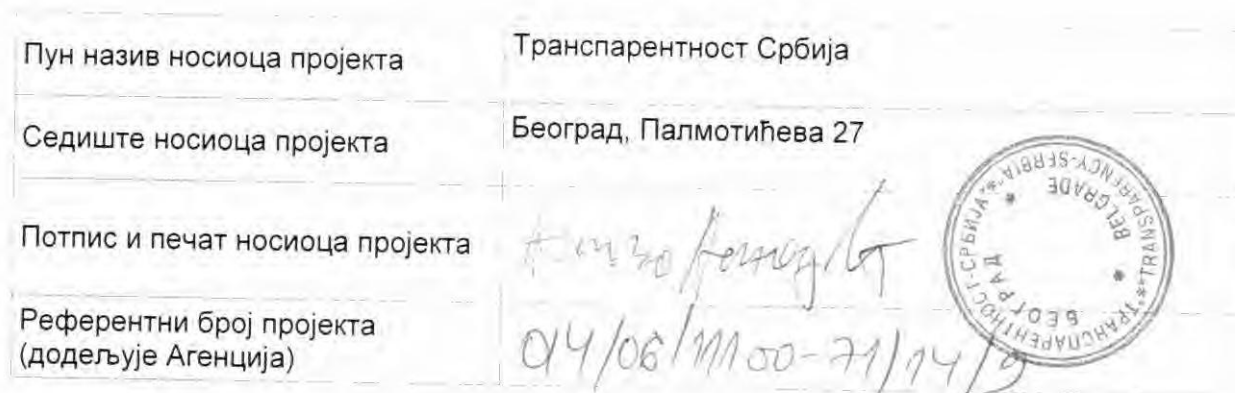 Пун назив носиоца пројекта
Транспарентност Србија
Седиште носиоца пројекта
Београд, Палмотићева 27
Потпис и печат носиоца пројекта
*ТРАНСПАРЕНТНОСТ-СРБИЈА**TRANSPARENCY-SERBIA*
БЕОГРАД * BELGRADE *
Референтни број пројекта
(додељује Агенција)
014/06/11100-71/14/9